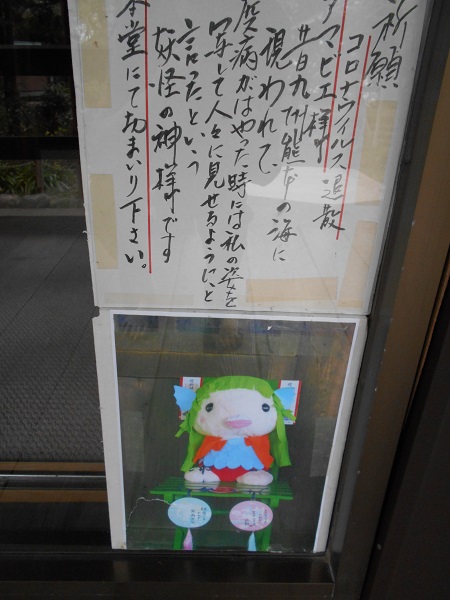 祈願
コロナウイルス退散
アマビエ様
昔日九州熊本の海に
現われて、
疫病がはやった時には私の姿を
写して人々に見せるようにと
言ったという
妖怪の神様です
本堂にてお まいり下さい。